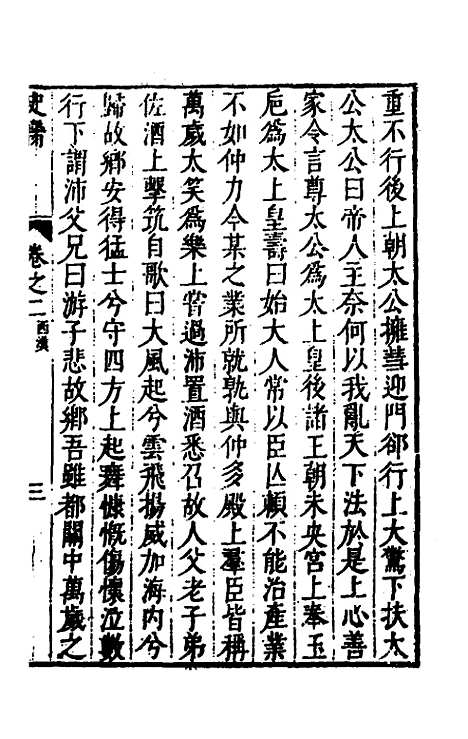 重不行後上朝太公擁彗迎門卻行上大驚下扶太
公太公曰帝人主奈何以我亂天下法於是上心善
家令言尊太公為太上皇後諸王朝未央宮上奉玉
巵為太上皇壽曰始大人常以臣亾賴不能治產業
不如仲力今某之業所就孰與仲多殿上羣臣皆稱
萬歲太笑為樂上嘗過沛置酒悉召故人父老子弟
佐酒上擊筑自歌曰大風起兮雲飛揚威加海內兮
歸故鄉安得猛士兮守四方上起舞慷慨傷懷泣數
行下謂沛父兄曰游子悲故鄉吾雖都關中萬歲之
史 卷之二 西漢 三